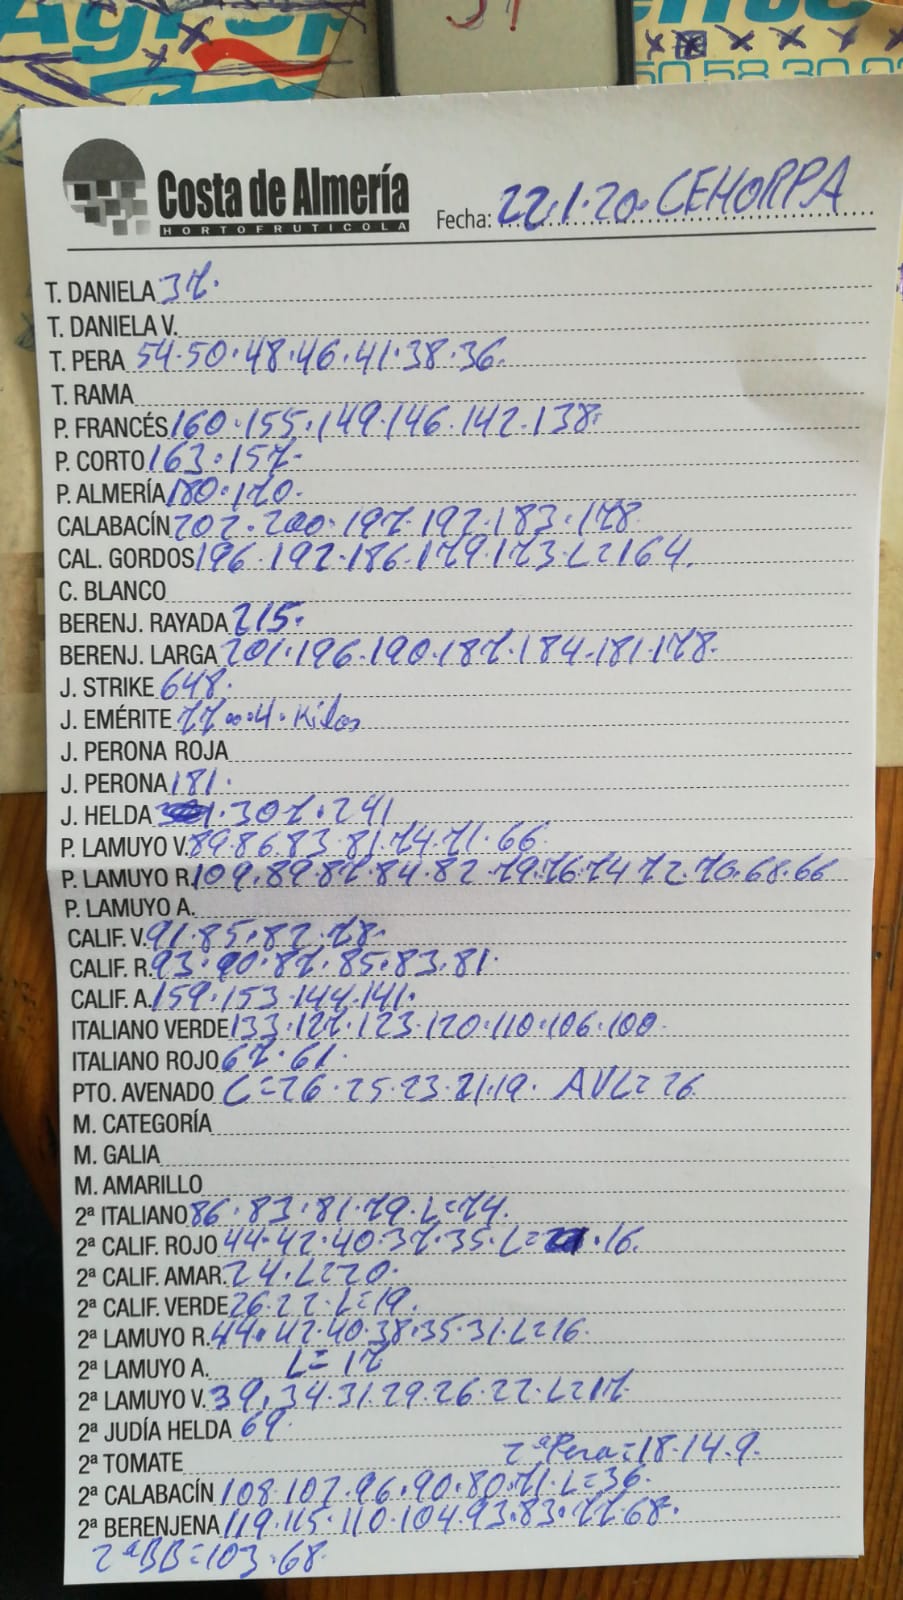 Costa de Almería
HORTOFRUTICOLA
Fecha: 22.1.20. CEHORPA
T. DANIELA 37.
T. DANIELA V.
T. PERA 54.50.48.46.41.38.36.
T. RAMA
P. FRANCÉS 160.155.149.146.142.138.
P. CORTO 163.157.
P. ALMERÍA 180.170.
CALABACÍN 202.200.197.192.183.178.
CAL. GORDOS 196.192.186.179.173.L=164.
C. BLANCO
BERENJ. RAYADA 215.
BERENJ. LARGA 201.196.190.187.184.181.178.
J. STRIKE 648.
J. EMÉRITE 4.Kilos
J. PERONA ROJA
J. PERONA 181.
J. HELDA .307.241
P. LAMUYO V. 89.86.83.81.74.71.66.
P. LAMUYO R. 109.89.87.84.82.79.76.74.72.70.68.66
P. LAMUYO A.
CALIF. V. 91.85.82.78.
CALIF. R. 93.90.87.85.83.81.
CALIF. A. 159.153.144.141.
ITALIANO VERDE 133.127.123.120.110.106.100.
ITALIANO ROJO 67.61.
PTO. AVENADO C=26.25.23.21.19. AVL=26.
M. CATEGORÍA
M. GALIA
M. AMARILLO
2ª ITALIANO 86.83.81.79.L=74.
2ª CALIF. ROJO 44.42.40.37.35.L= .16.
2ª CALIF. AMAR. 24.L=20.
2ª CALIF. VERDE 26.22.L=19.
2ª LAMUYO R. 44.42.40.38.35.31.L=16.
2ª LAMUYO A. L=17
2ª LAMUYO V. 39.34.31.29.26.22.L=17.
2ª JUDÍA HELDA 69.
2ª TOMATE 2ªPera=18.14.9.
2ª CALABACÍN 108.102.96.90.80.71.L=36.
2ª BERENJENA 119.115.110.104.93.83.77.68.
2ªBB=103.68.